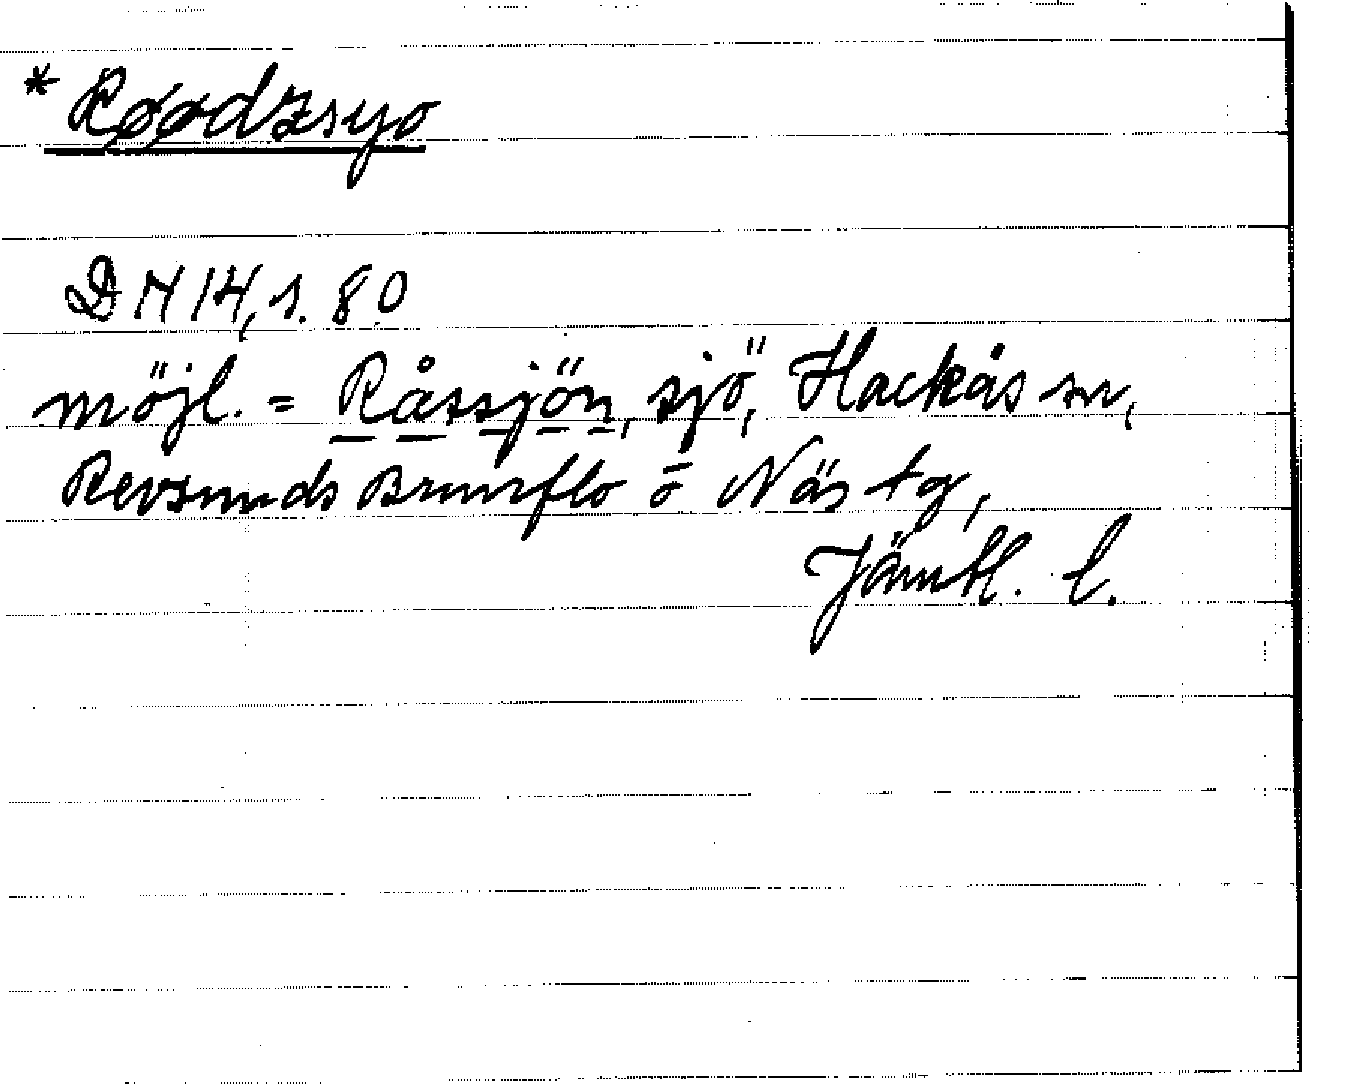 * Røødzsyo
DN 14, s. 80
möjl. = Råssjön, sjö, Hackås sn,
Revsunds Brunflo o Näs tg,
Jämtl. l.